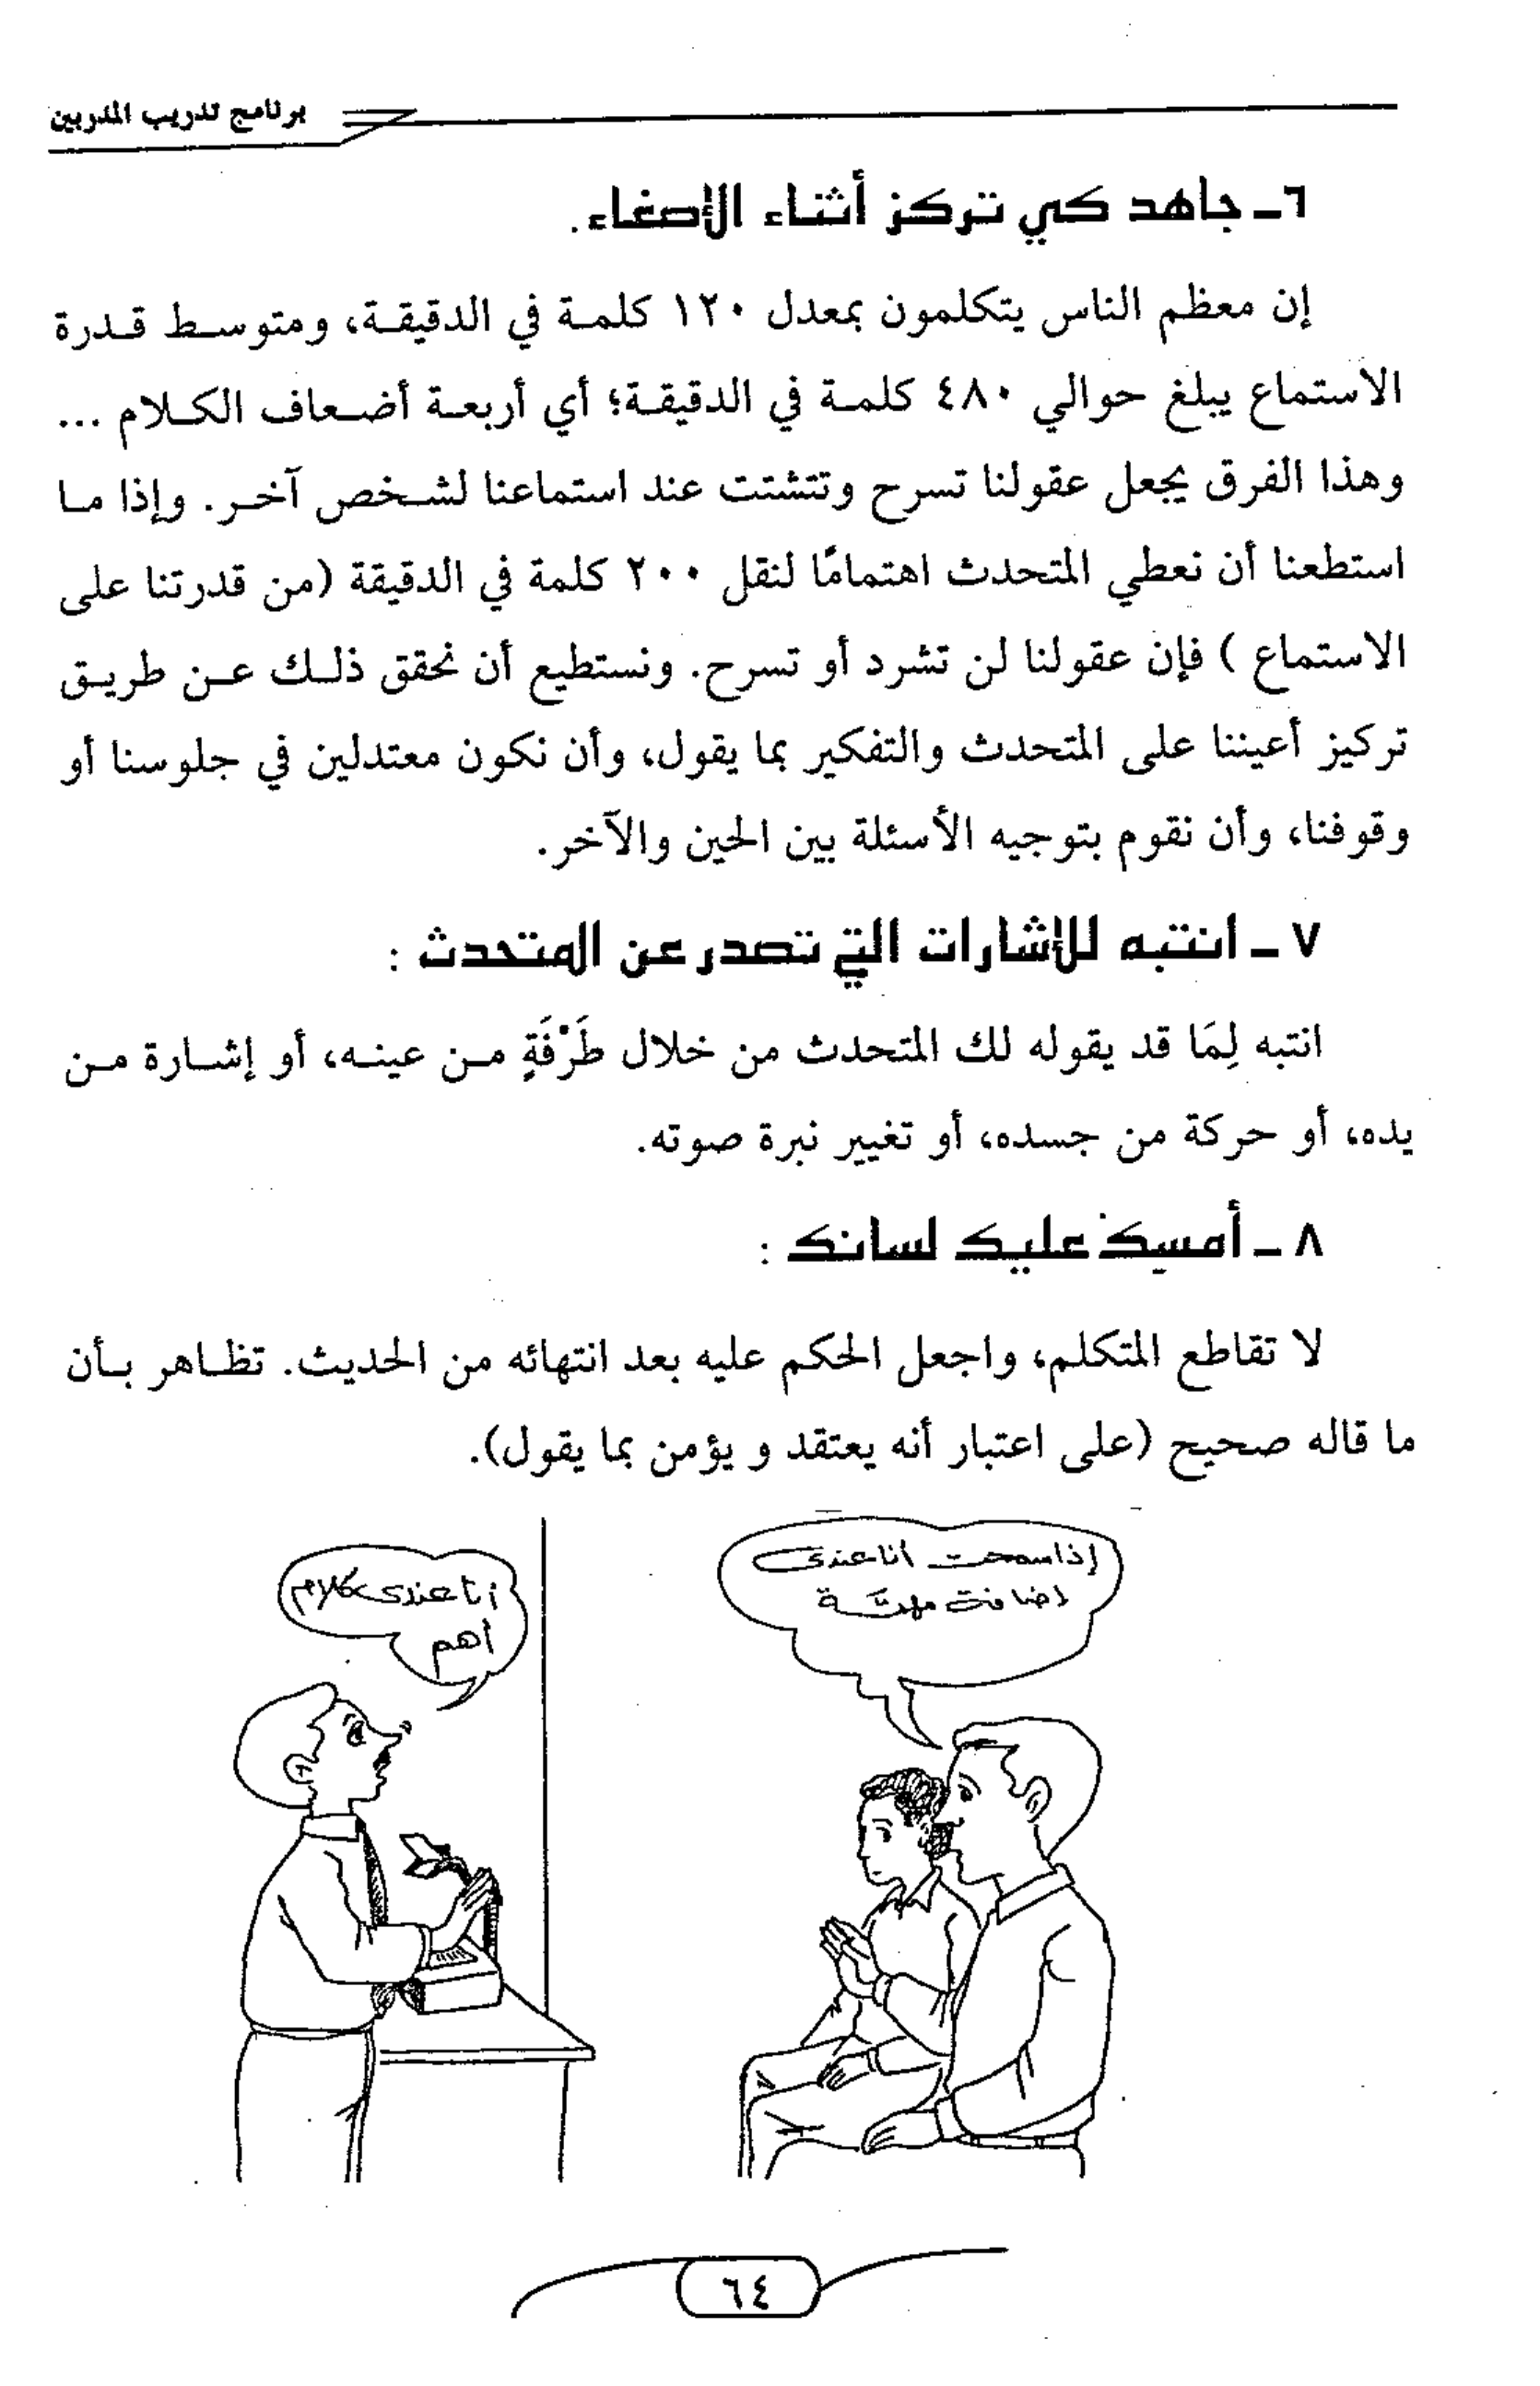 برنامج تدريب المدربين
٦ـ جاهد كي تركز أثناء الإصغاء.
إن معظم الناس يتكلمون بمعدل ١٢٠ كلمة في الدقيقة، ومتوسط قدرة
الاستماع يبلغ حوالي ٤٨٠ كلمة في الدقيقة؛ أي أربعة أضعاف الكلام ...
وهذا الفرق يجعل عقولنا تسرح وتتشتت عند استماعنا لشخص آخر. وإذا ما
استطعنا أن نعطي المتحدث اهتمامًا لنقل ٢٠٠ كلمة في الدقيقة (من قدرتنا على
الاستماع ) فإن عقولنا لن تشرد أو تسرح. ونستطيع أن نحقق ذلك عن طريق
تركيز أعيننا على المتحدث والتفكير بما يقول، وأن نكون معتدلين في جلوسنا أو
وقوفنا، وأن نقوم بتوجيه الأسئلة بين الحين والآخر.
٧ ـ انتبه للإشارات التي تصدر عن المتحدث :
انتبه لِمَا قد يقوله لك المتحدث من خلال طَرْفَةٍ من عينه، أو إشارة من
يده، أو حركة من جسده، أو تغيير نبرة صوته.
٨ ـ أمسك عليك لسانك :
لا تقاطع المتكلم، واجعل الحكم عليه بعد انتهائه من الحديث. تظاهر بأن
ما قاله صحيح (على اعتبار أنه يعتقد و يؤمن بما يقول).
إذا سمحت أنا عندى
إضافة مهمة
أنا عندى كلام
أهم
٦٤